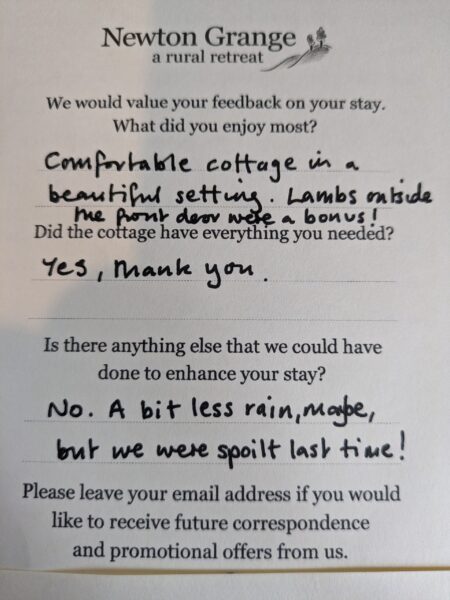 Newton Grange
a rural retreat
We would value your feedback on your stay.
What did you enjoy most?
Comfortable cottage in a
beautiful setting. Lambs outside
the front door were a bonus!
Did the cottage have everything you needed?
Yes, thank you.
Is there anything else that we could have
done to enhance your stay?
No. A bit less rain, maybe,
but we were spoilt last time!
Please leave your email address if you would
like to receive future correspondence
and promotional offers from us.